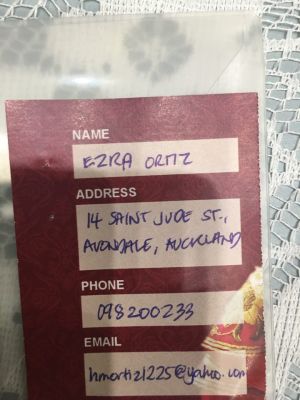 NAME
EZRA ORTIZ
ADDRESS
14 SAINT JUDE ST.,
AVONDALE, AUCKLAND
PHONE
098200233
EMAIL
hmortiz1225@yahoo.com